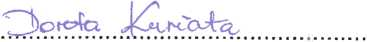 Dorota Kuriata